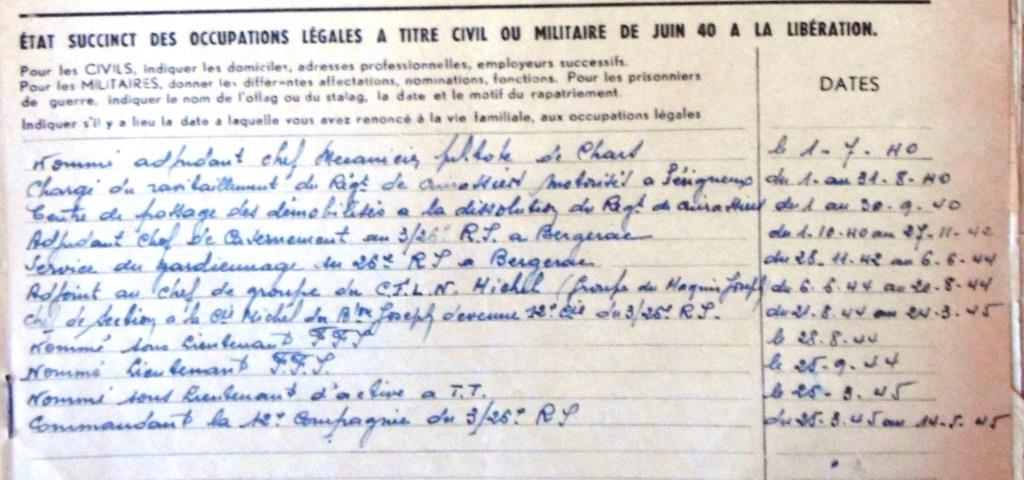 ÉTAT SUCCINCT DES OCCUPATIONS LÉGALES A TITRE CIVIL OU MILITAIRE DE JUIN 40 A LA LIBÉRATION.
Pour les CIVILS, indiquer les domiciles, adresses professionnelles, employeurs successifs.
Pour les MILITAIRES, donner les différentes affectations, nominations, fonctions. Pour les prisonniers
de guerre, indiquer le nom de l'oflag ou du stalag, la date et le motif du rapatriement.
Indiquer s'il y a lieu la date à laquelle vous avez renoncé à la vie familiale, aux occupations légales
DATES
Nommé adjudant chef Mecanicien pilote de Chars le 1-7-40
Chargé du ravitaillement du Régt. de cuirassiers motorisés a Périgueux du 1. au 31-8-40
Centre de passage des démobilisés a la dissolution du Régt. de cuirassiers du 1 au 30-9-40
Adjudant chef de Casernement au 3/26e R.I. a Bergerac du 1-10-40 au 27-11-42
Service du gardiennage du 26e R I a Bergerac du 28.11.42 au 6-6-44
Adjoint au chef de groupe du C.F.L.N. Michel (Groupe du Maquis Joseph du 6.6.44 au 20-8-44
Chf de Section a la Cie Michel du Bton Joseph devenue 12e Cie du 3/26e R I. du 21.8.44 au 24-3-45
Nommé sous Lieutenant F F I le 28.8.44
Nommé Lieutenant F.F.I. le 25-9-44
Nommé sous Lieutenant d'active a T.T. le 25-3-45
Commandant la 12e Compagnie du 3/26e R I du 25-3-45 au 14-5-45